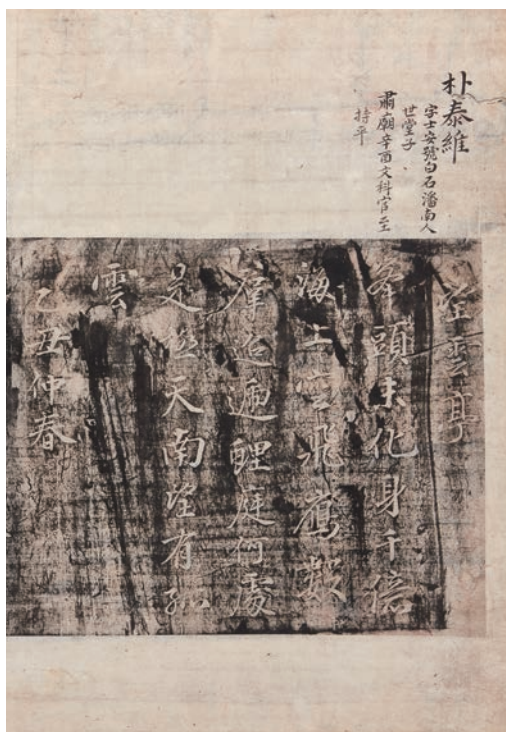 朴泰維
字士安號白石潘南人
世堂子
肅廟辛酉文科官至
持平
望雲亭
峯頭未化身千億
海上空飛鴈數
羣迢遞鯉庭何處
是極天南望有孤
雲
乙丑仲春